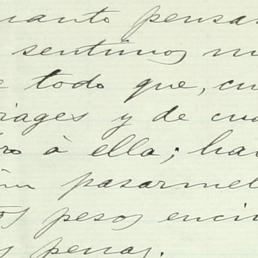 uanto pensa
sentimos m
e todo que, cu
iages y de cu
ro à ella; ha
pasarmel
os pesos enci
s penas.